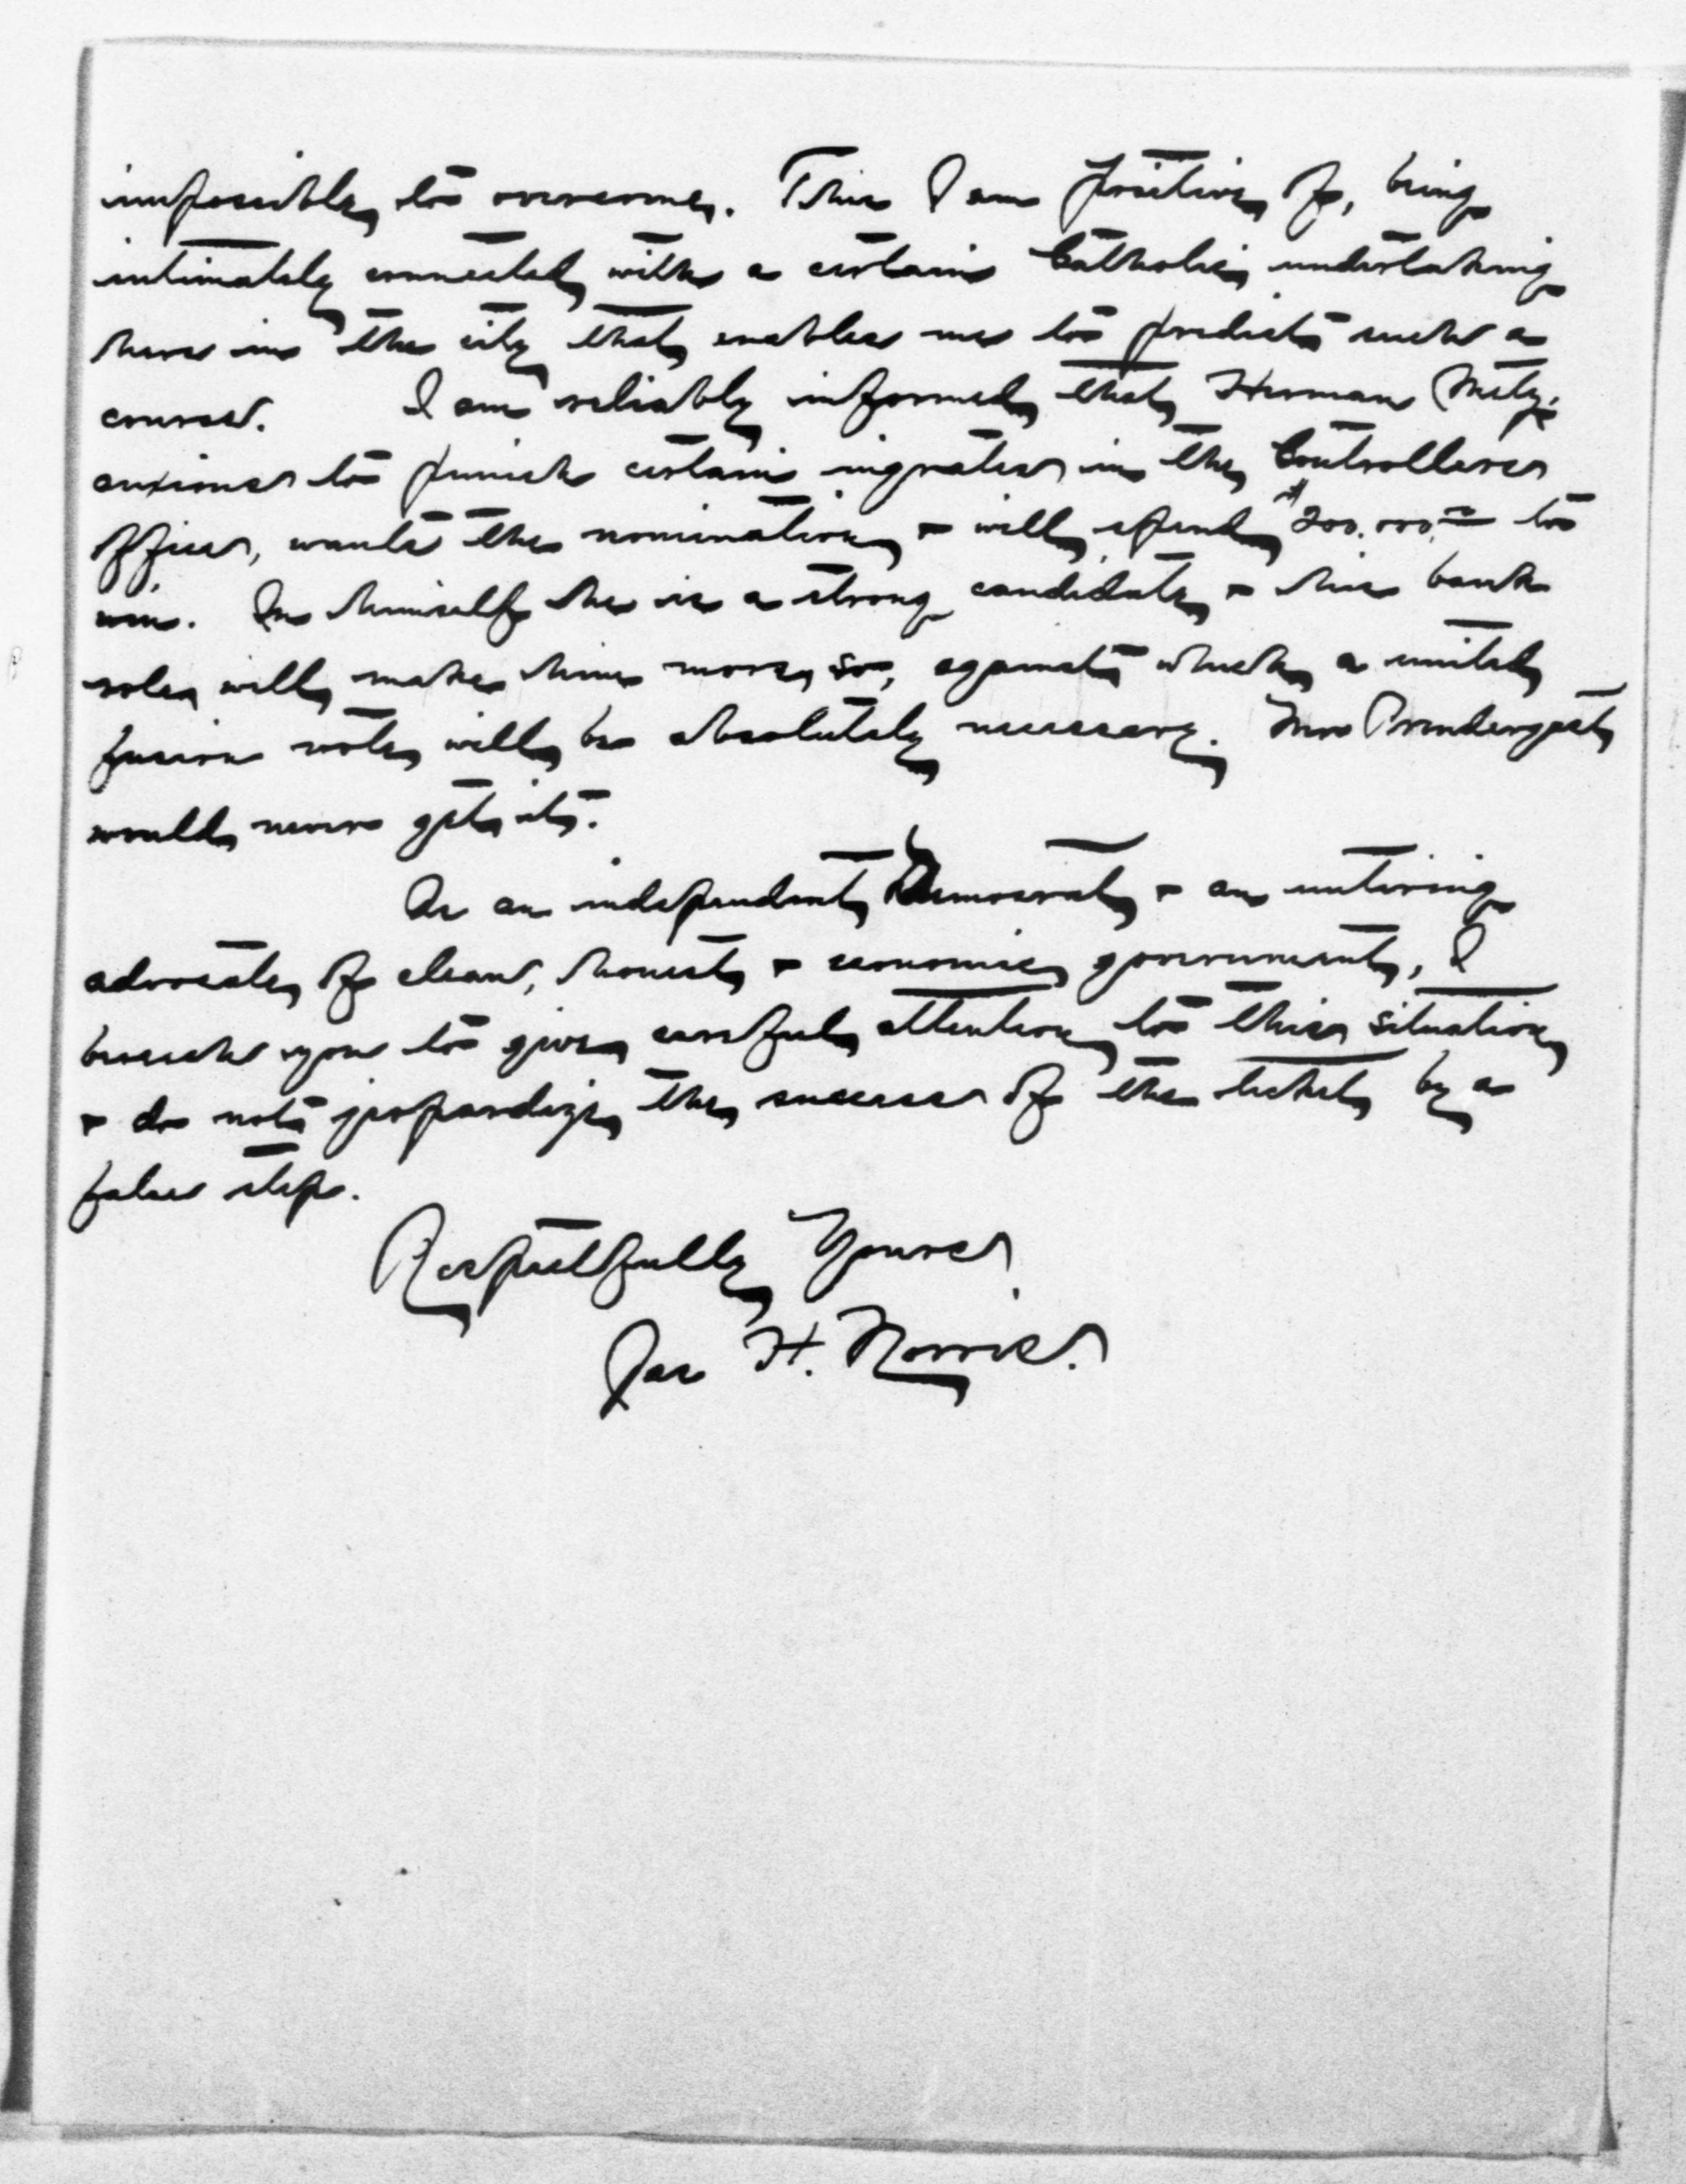 impossible to overcome. This I am positive of, being
intimately connected with a certain Catholic undertaking
here in the city that enables me to predict such a
course. I am reliably informed that Herman Metz,
anxious to punish certain ingrates in the Controllers
office, wants the nomination & will spend $200.000.00 to
win. In himself he is a strong candidate & his bank
role will make him more so, against which a united
fusion vote will be absolutely necessary. Mr Prendergast
would never get it.
As an independent Democrat & an untiring
advocate of clean, honest & economic government, I
beseech you to give careful attention to this situation
& do not jeopardize the success of the ticket by a
false step.
Respectfully Yours
Jas H. Norris.